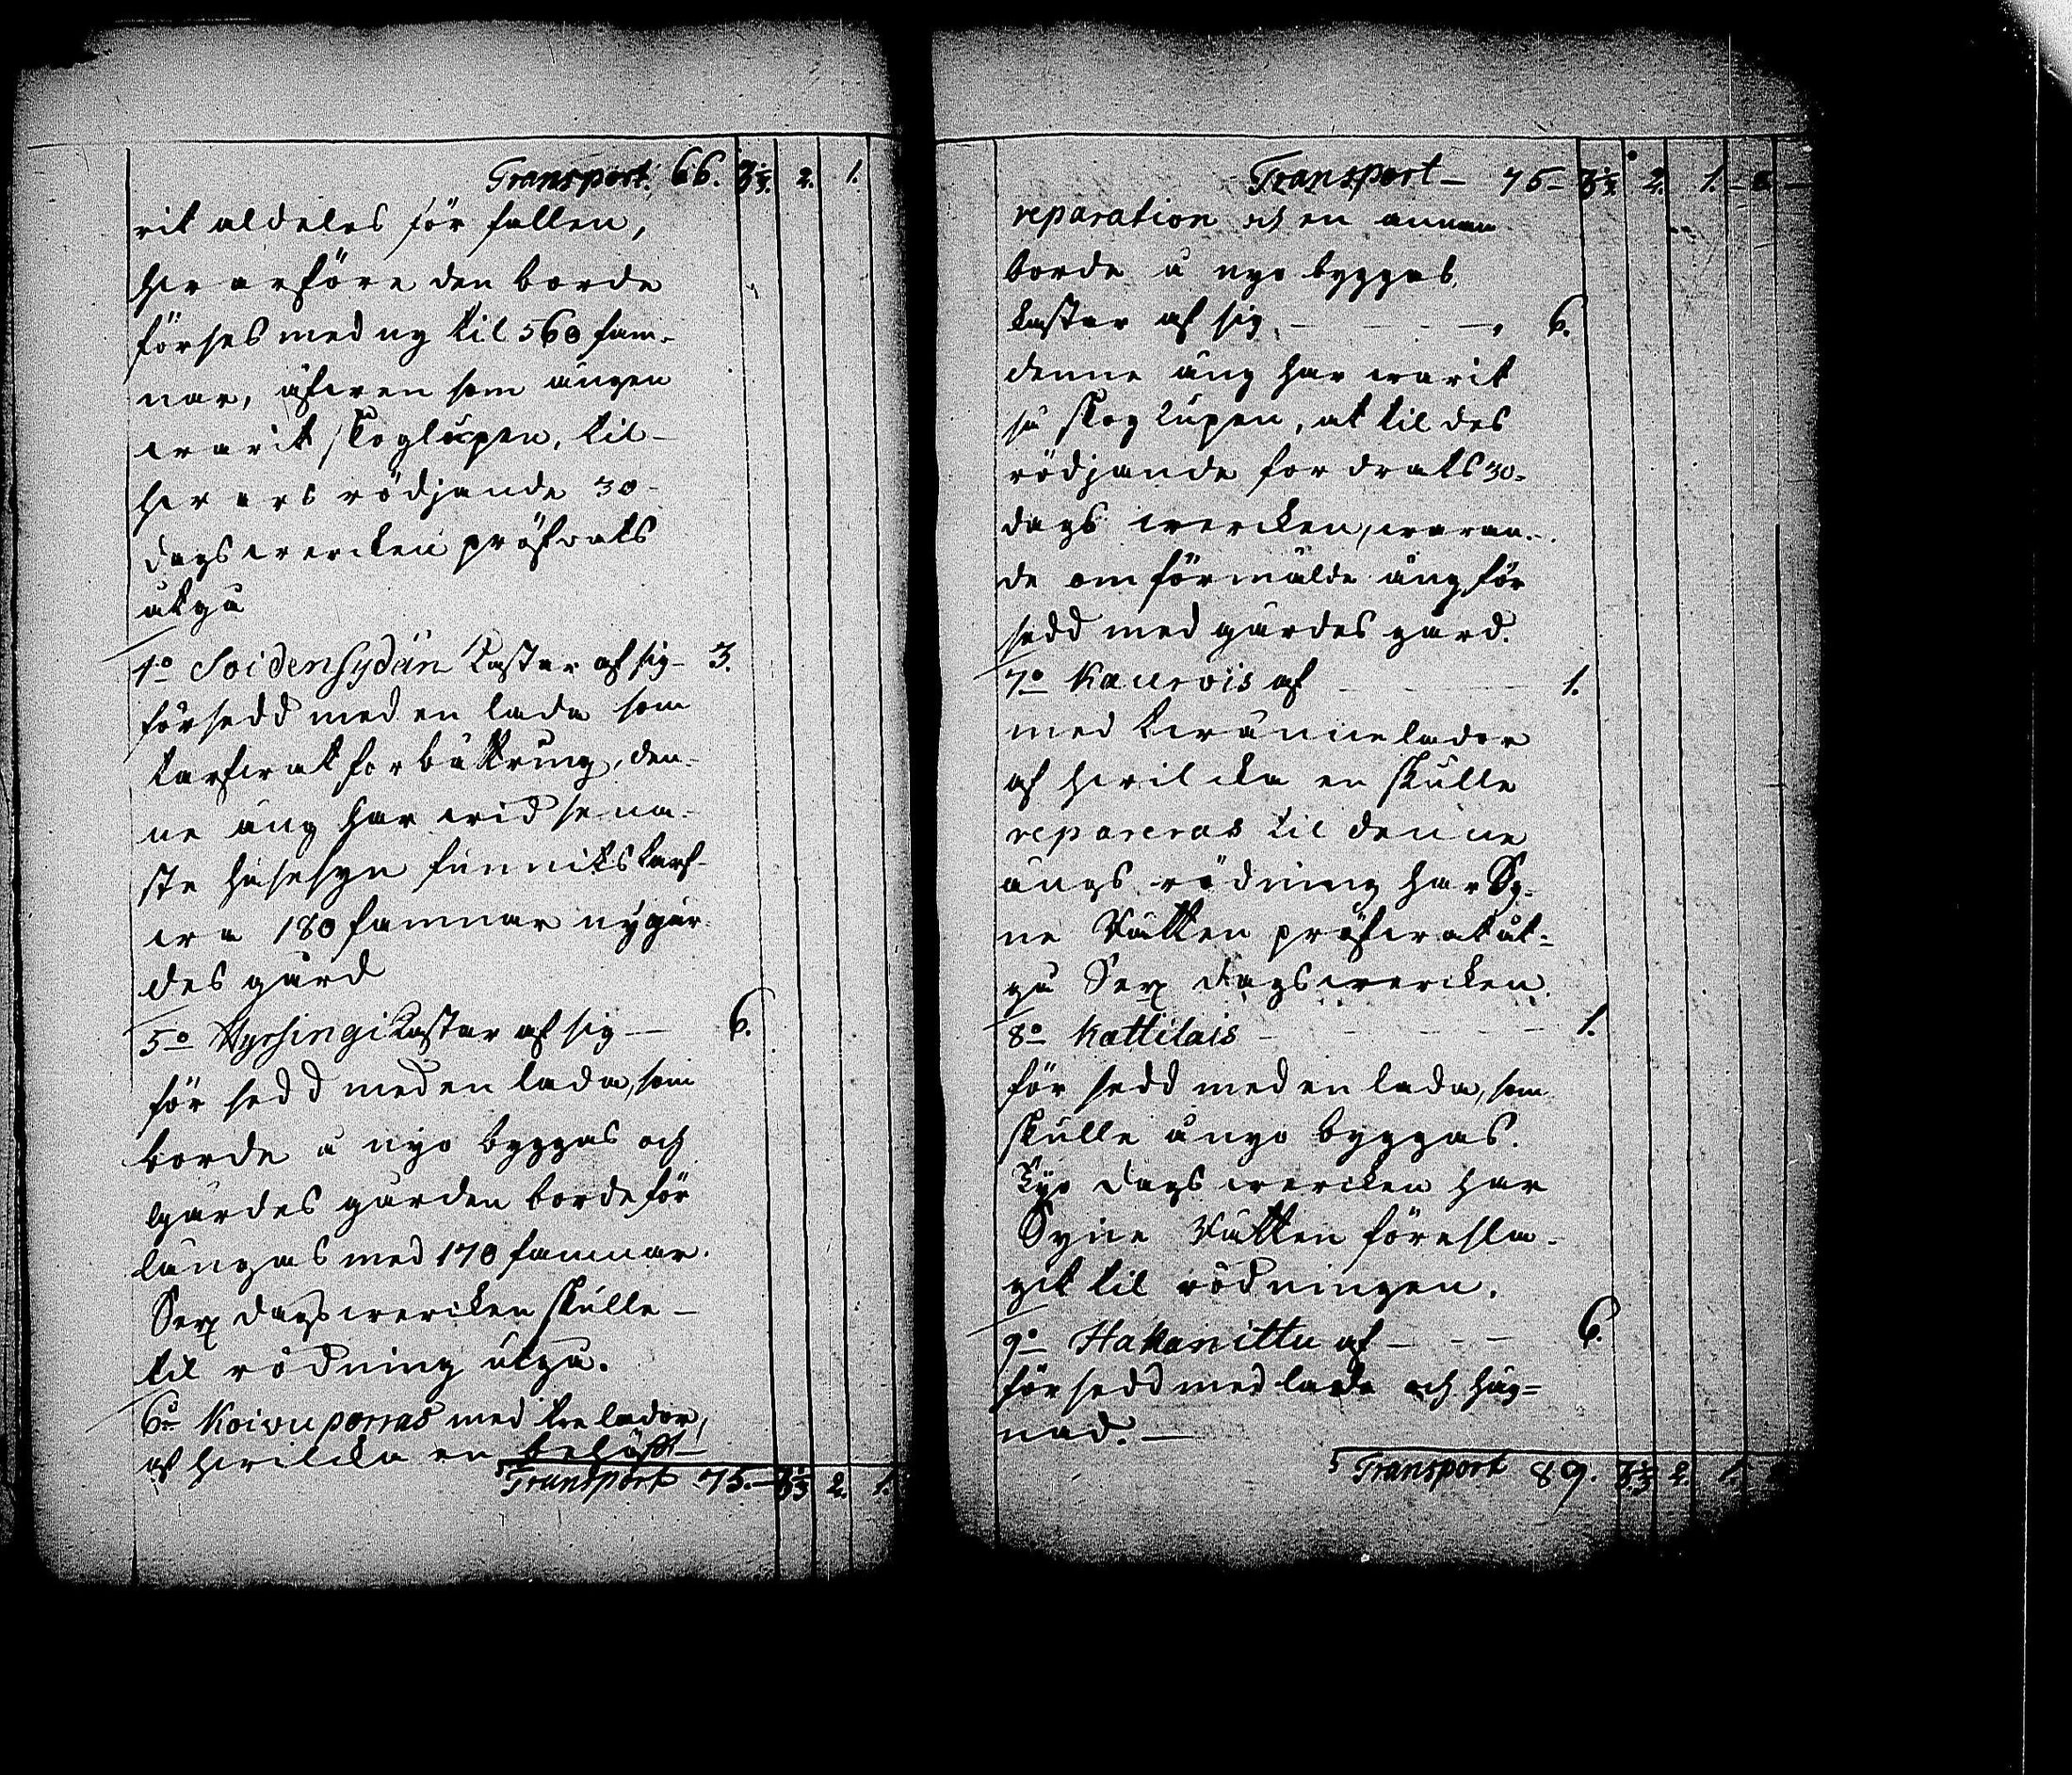 Transport. 66. 3 1/3. 2. 1.
rit aldeles för fallen,
hvarföre den borde
förses med ny til 560 fam-
nar, äfven som ängen
warit skoglupen, til
hvars rödjande 30
dagswercken pröfvats
utgå
4o Soidensydän kastar af sig - 3.
försedd med en lada som
tarfvat forbättring, den-
ne äng har wid sena-
ste husesyn funnits tarf-
wa 180 famnar ny gär-
des gård
5o Hyrsingi kastar af sig - 6.
för sedd med en lada, som
borde å nyo byggas och
Gärdes gården borde för
längas med 170 famnar.
Sex dagswercken skulle -
til rödning utgå.
6o Koivuporras med tre lador,
af hvilcka en behöft -
Transport 75. - 3 1/3 2. 1.
Transport - 75 - 3 1/3 2. 1. -
reparation och en annan
borde å nyo byggas,
kastar af sig. - - - 6.
denne äng har warit
så skog lupen, at til des
rödjande fordrats 30
dags wercken, waran-
de omförmälde äng för
sedd med gärdes gård.
7o Kaurois af - - - 1.
med twänne lador
af hvilcka en skulle
repareras til denne
ängs rödning har Sy-
ne Rätten pröfvat åt-
gå Sex dagswercken.
8o Kattilais - - - 1.
för sedd med en lada, som
skulle ånyo byggas.
Tyo dags wercken har
Syne Rätten föresla-
git til rödningen.
9o Hakanittu af - - - 6.
försedd med lada och häg-
nad. -
Transport 89. 3 1/3 2. 1.